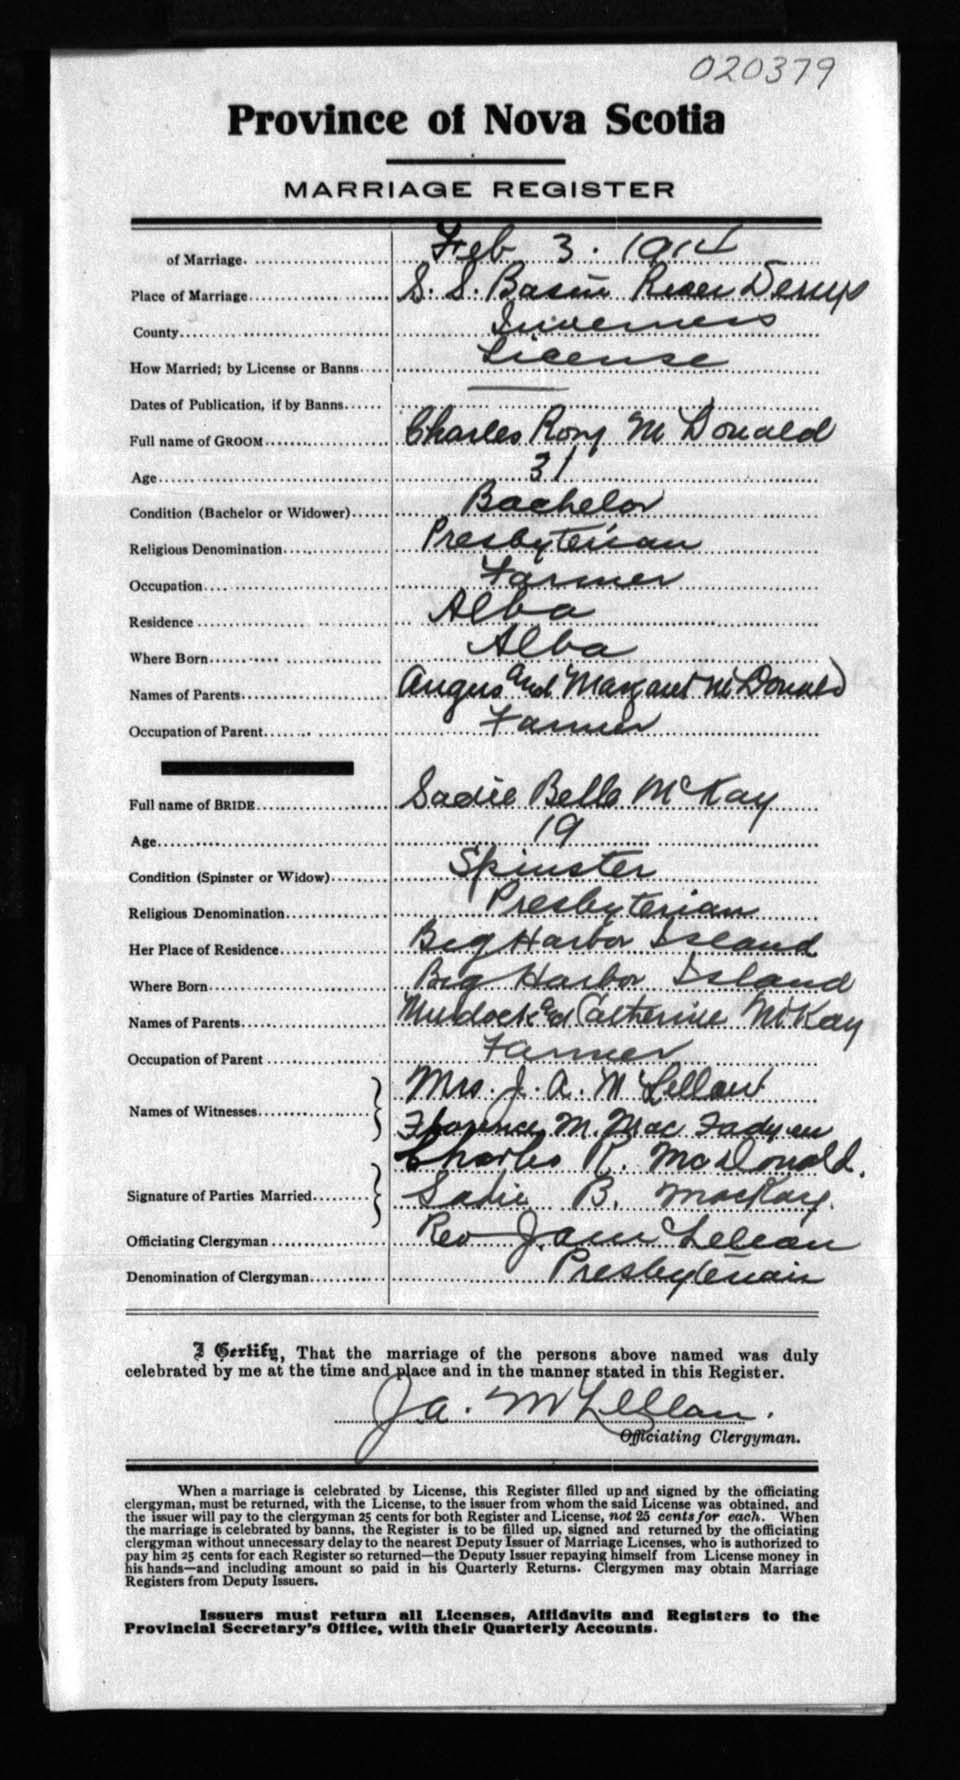 020379
Province of Nova Scotia
MARRIAGE REGISTER
of Marriage. Feb 3. 1914
Place of Marriage S. S. Basin River Dennys
County Inverness
How Married; by License or Banns License
Dates of Publication, if by Banns —
Full name of GROOM Charles Rory McDonald
Age 31
Condition (Bachelor or Widower) Bachelor
Religious Denomination Presbyterian
Occupation Farmer
Residence Alba
Where Born Alba
Names of Parents Angus and Margaret McDonald
Occupation of Parent Farmer
Full name of BRIDE Sadie Belle McKay
Age 19
Condition (Spinster or Widow) Spinster
Religious Denomination Presbyterian
Her Place of Residence Big Harbor Island
Where Born Big Harbor Island
Names of Parents Murdock and Catherine McKay
Occupation of Parent Farmer
Mrs. J. A. McLellan
Names of Witnesses
Florence M. MacFadyen
Charles R. McDonald.
Signature of Parties Married Sadie B. MacKay.
Officiating Clergyman Rev J. A. McLellan
Denomination of Clergyman Presbyterian
I Certify, That the marriage of the persons above named was duly
celebrated by me at the time and place and in the manner stated in this Register.
J. A. McLellan.
Officiating Clergyman.
When a marriage is celebrated by License, this Register filled up and signed by the officiating
clergyman, must be returned, with the License, to the issuer from whom the said License was obtained, and
the issuer will pay to the clergyman 25 cents for both Register and License, not 25 cents for each. When
the marriage is celebrated by banns, the Register is to be filled up, signed and returned by the officiating
clergyman without unnecessary delay to the nearest Deputy Issuer of Marriage Licenses, who is authorized to
pay him 25 cents for each Register so returned—the Deputy Issuer repaying himself from License money in
his hands—and including amount so paid in his Quarterly Returns. Clergymen may obtain Marriage
Registers from Deputy Issuers.
Issuers must return all Licenses, Affidavits and Registers to the
Provincial Secretary's Office, with their Quarterly Accounts.